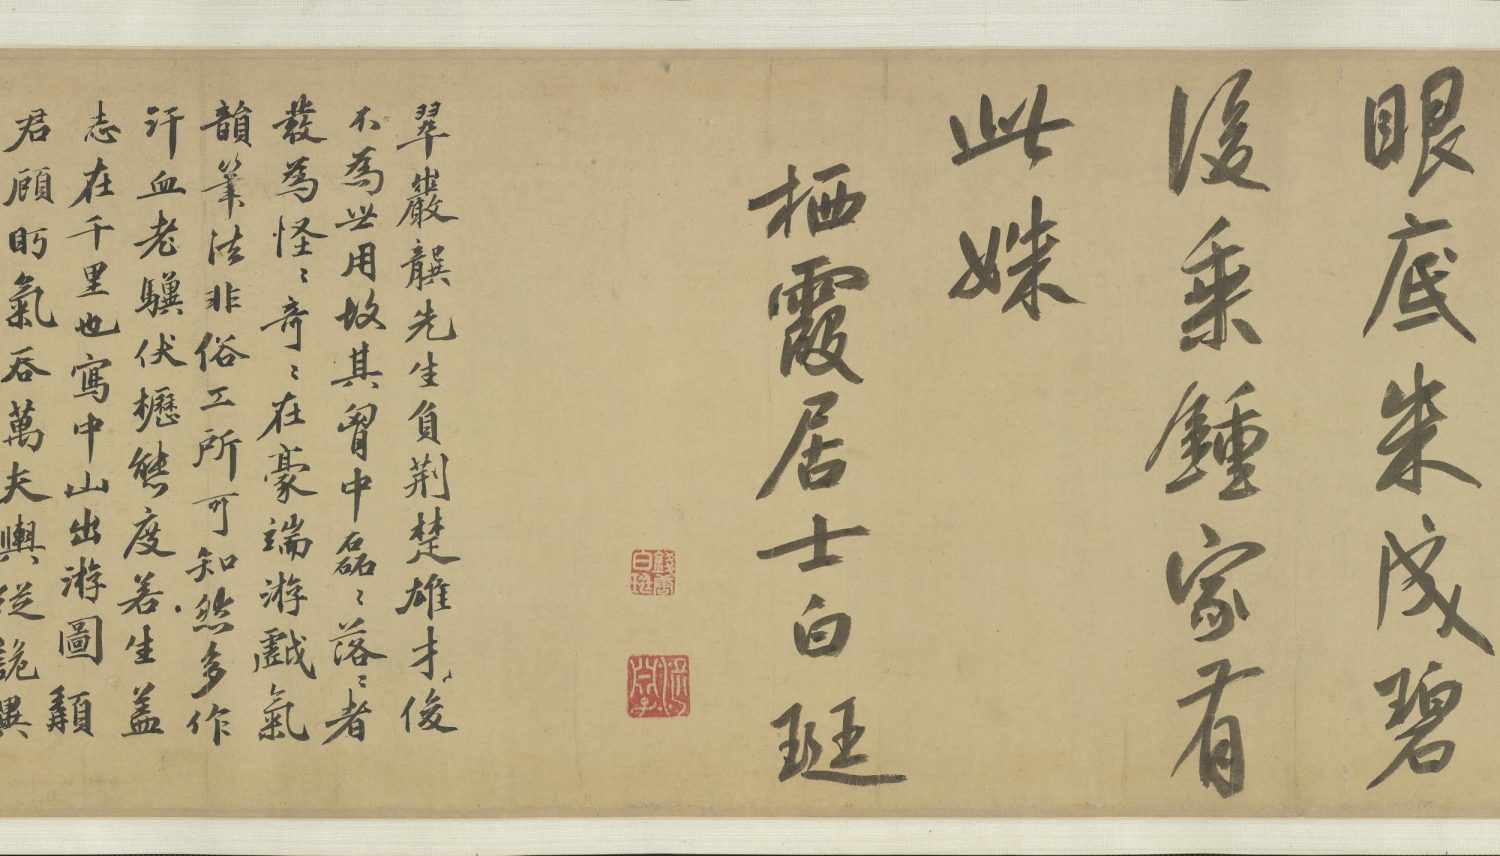 眼底朱成碧
後乘鍾家有
此姝
栖霞居士白珽
錢唐白珽
翠巖龔先生負荆楚雄才俊
不為世用故其胷中磊〻落〻者
發為怪〻奇〻在豪端游戲氣
韻筆法非俗工所可知然多作
汗血老驥伏櫪態度若生蓋
志在千里也寫中山出游圖
君顧眄氣吞萬夫輿從詭異